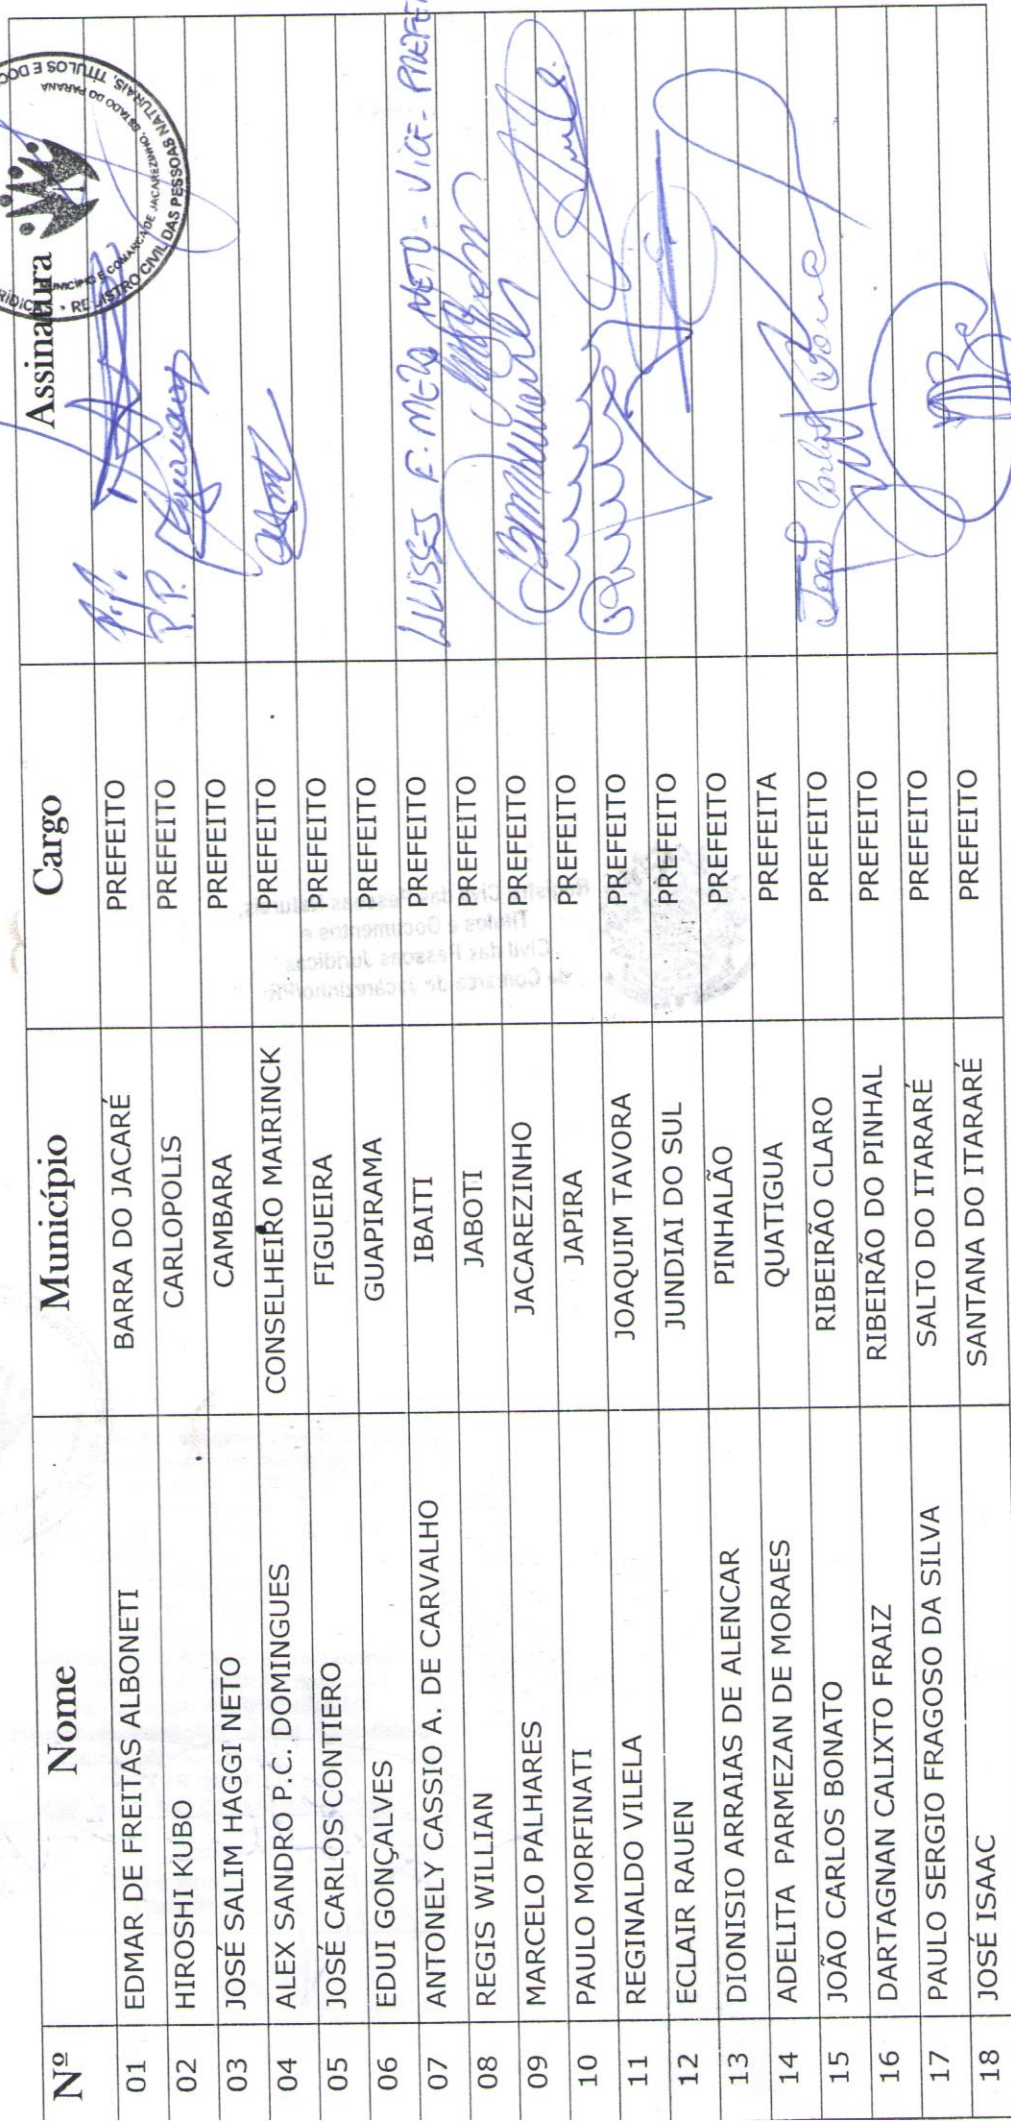 Nº Nome Município Cargo Assinatura
01 EDMAR DE FREITAS ALBONETI BARRA DO JACARÉ PREFEITO P.P.
02 HIROSHI KUBO CARLOPOLIS PREFEITO P.P.
03 JOSÉ SALIM HAGGI NETO CAMBARA PREFEITO
04 ALEX SANDRO P.C. DOMINGUES CONSELHEIRO MAIRINCK PREFEITO
05 JOSÉ CARLOS CONTIERO FIGUEIRA PREFEITO
06 EDUI GONÇALVES GUAPIRAMA PREFEITO
07 ANTONELY CASSIO A. DE CARVALHO IBAITI PREFEITO ULISSES F. MELO NETO - VICE-PREFEI
08 REGIS WILLIAN JABOTI PREFEITO
09 MARCELO PALHARES JACAREZINHO PREFEITO
10 PAULO MORFINATI JAPIRA PREFEITO
11 REGINALDO VILELA JOAQUIM TAVORA PREFEITO
12 ECLAIR RAUEN JUNDIAI DO SUL PREFEITO
13 DIONISIO ARRAIAS DE ALENCAR PINHALÃO PREFEITO
14 ADELITA PARMEZAN DE MORAES QUATIGUA PREFEITA
15 JOÃO CARLOS BONATO RIBEIRÃO CLARO PREFEITO João Carlos
16 DARTAGNAN CALIXTO FRAIZ RIBEIRÃO DO PINHAL PREFEITO
17 PAULO SERGIO FRAGOSO DA SILVA SALTO DO ITARARÉ PREFEITO
18 JOSÉ ISAAC SANTANA DO ITARARÉ PREFEITO
REGISTRO CIVIL DAS PESSOAS NATURAIS, TÍTULOS E DOC
MUNICÍPIO E COMARCA DE JACAREZINHO, ESTADO DO PARANÁ
Registro Civil das Pessoas Naturais,
Títulos e Documentos e
Civil das Pessoas Jurídicas
da Comarca de Jacarezinho/PR